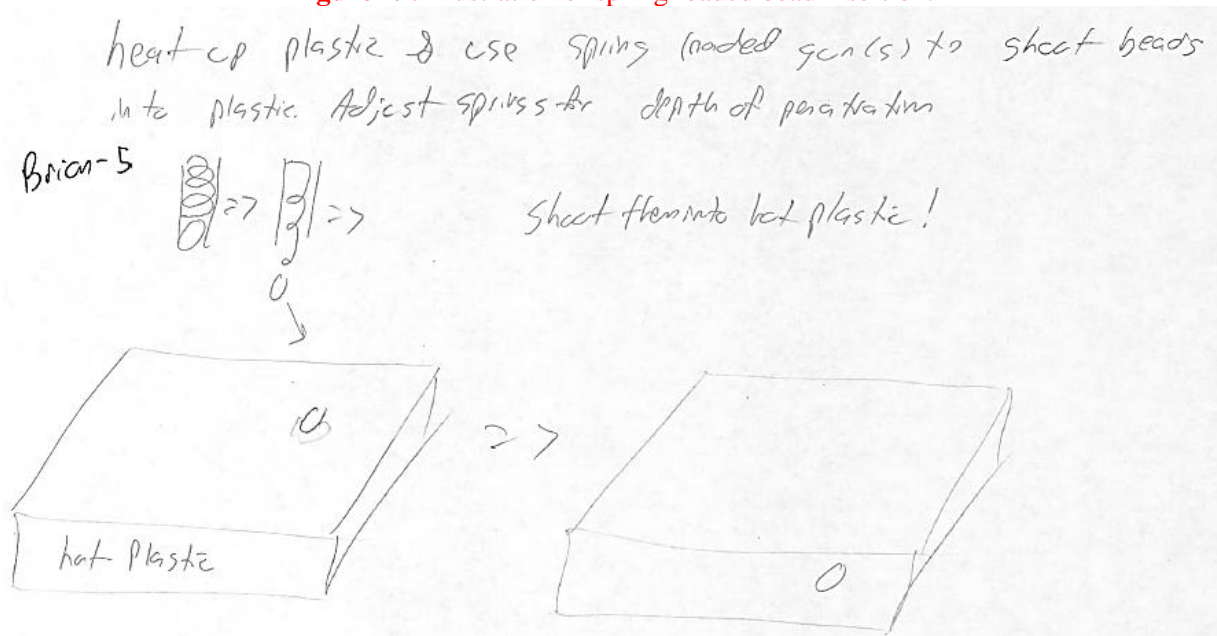 heat up plastic & use spring loaded gun(s) to shoot beads
into plastic. Adjust springs for depth of penatration
Brian-5
=> => Shoot them into hot plastic!
=>
hot Plastic